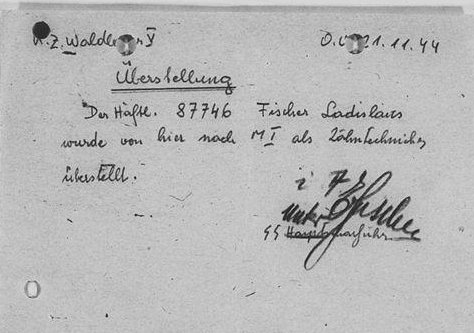 K.Z. Waldlager V O.U. 21.11.44
Überstellung
Der Häftl. 87746 Fischer Ladislaus
wurde von hier nach M I als Zahntechniker
überstellt.
i A
Unter
SS